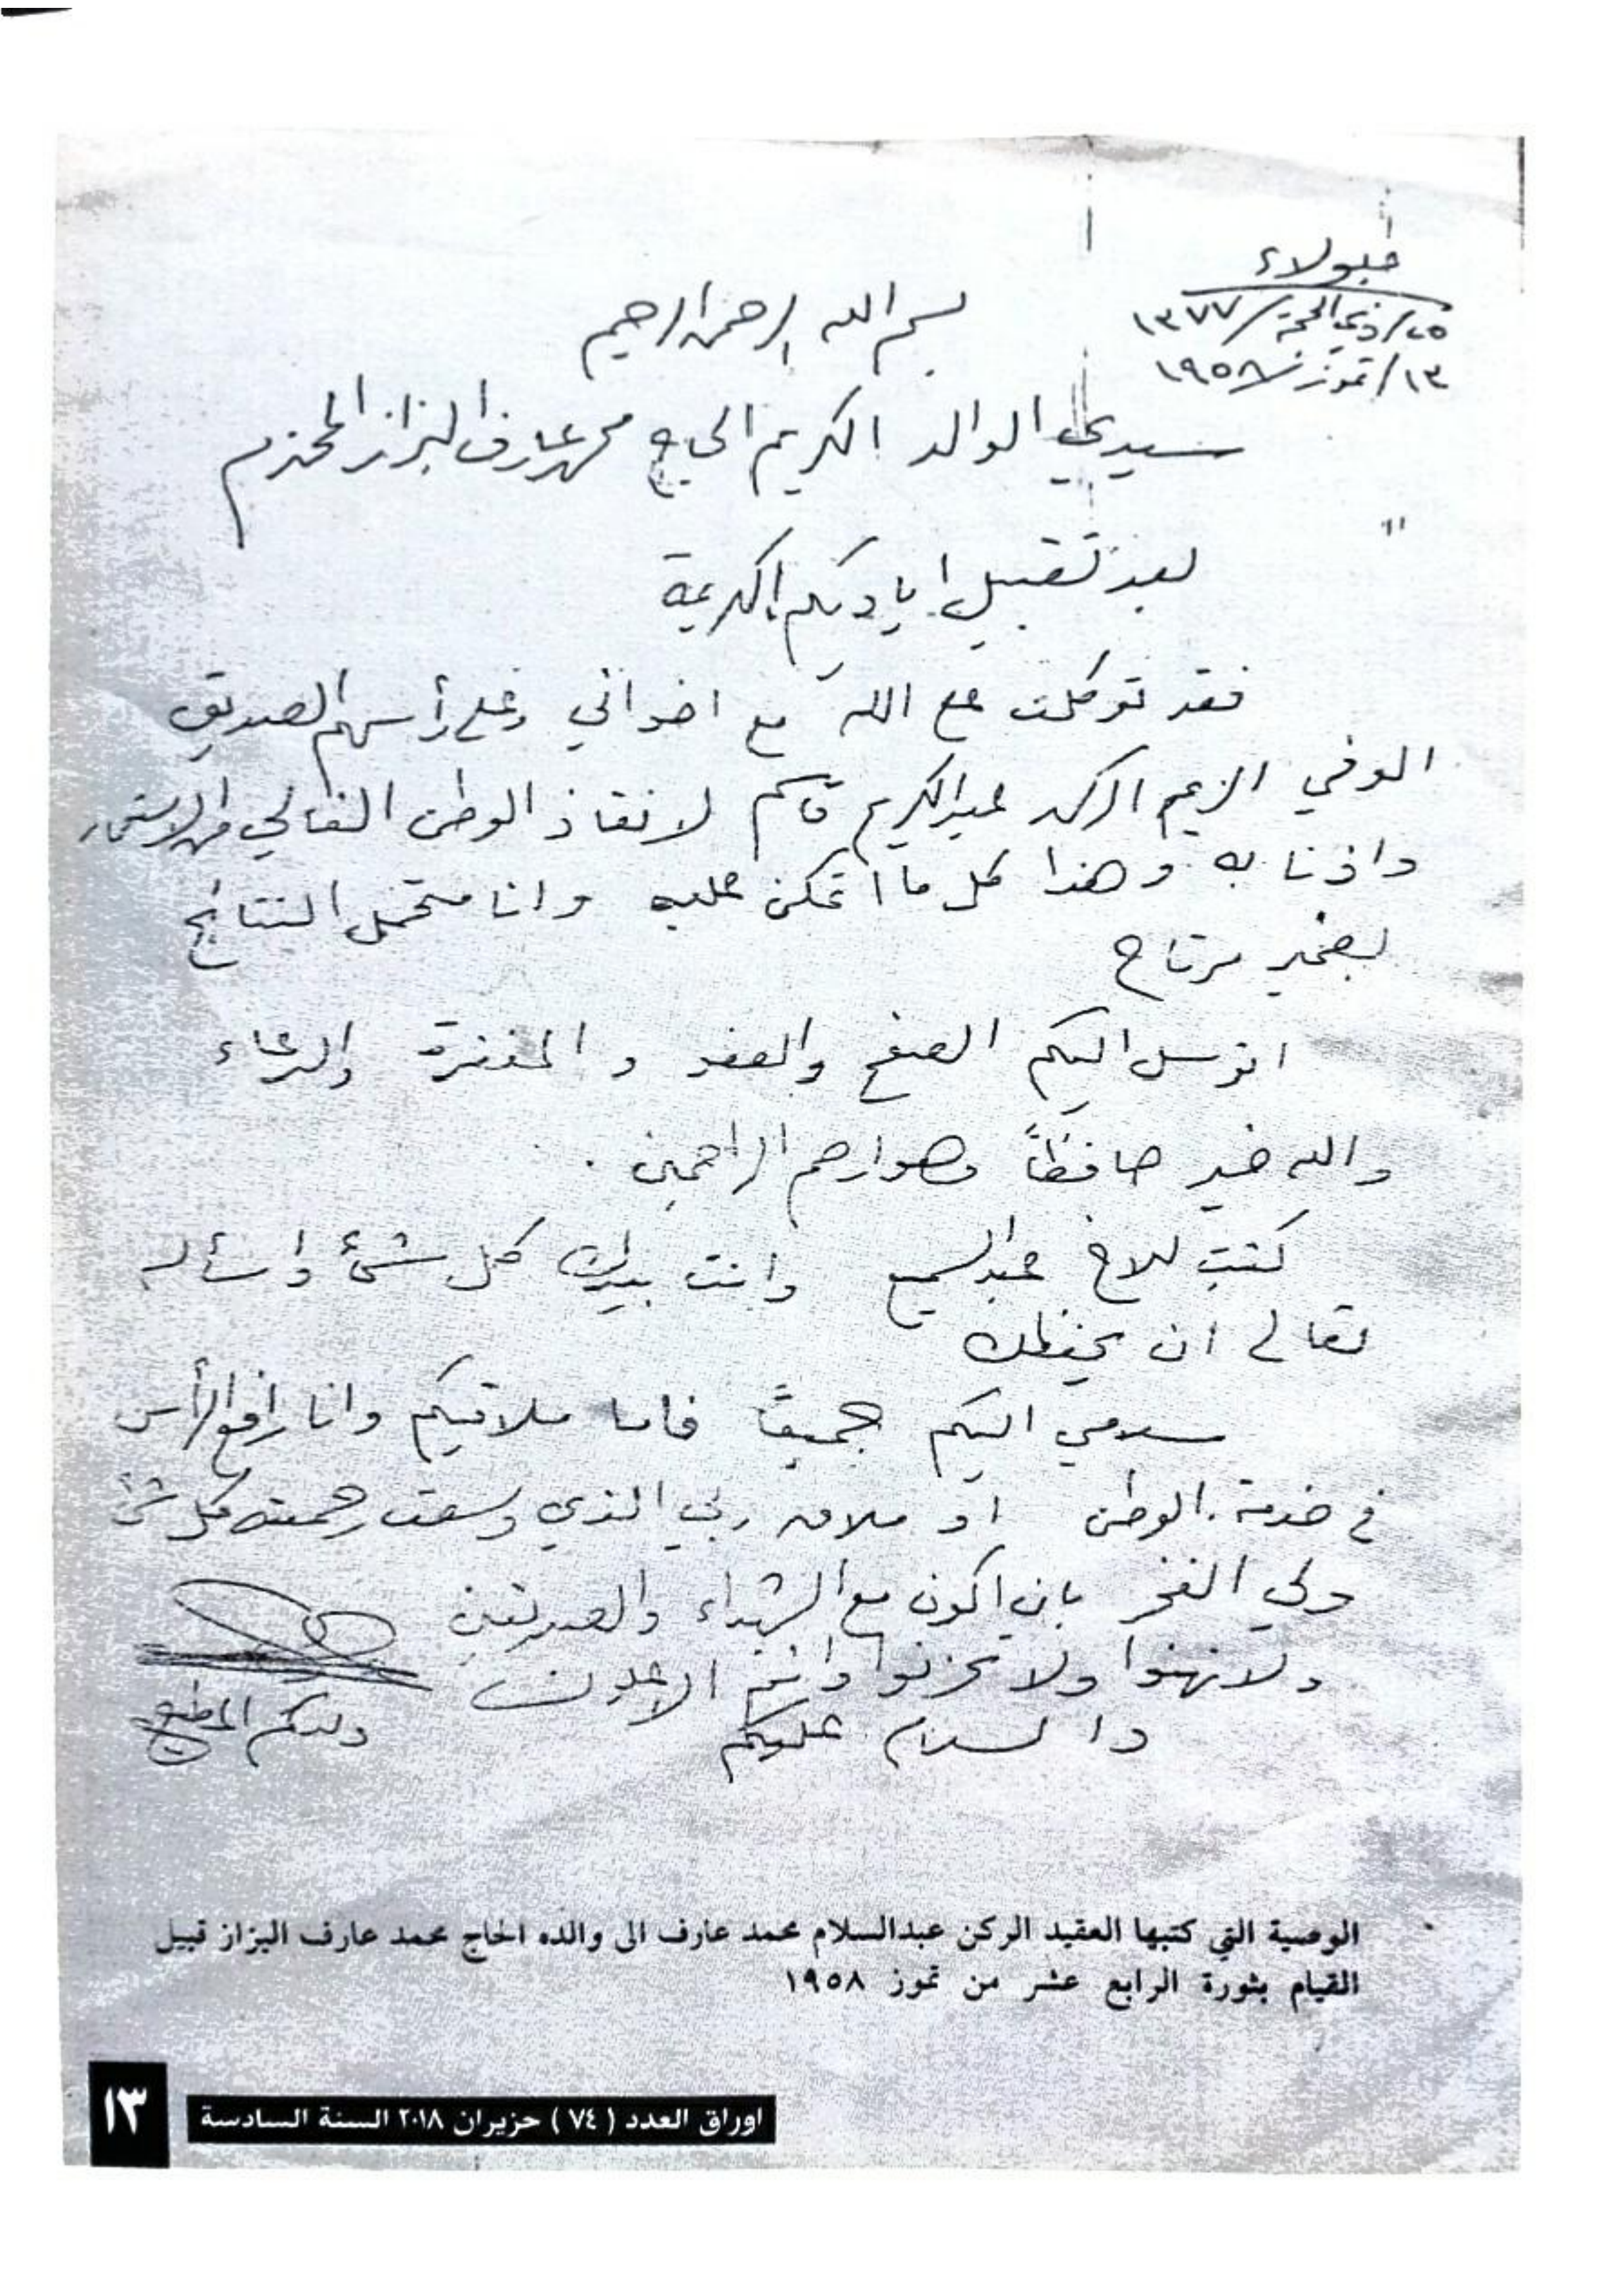 جلولاء
٢٥/ذي الحجة/١٣٧٧
١٣/تموز/١٩٥٨
بسم الله الرحمن الرحيم
سيدي الوالد الكريم الحاج محمد عارف البزاز المحترم
بعد تقبيل اياديكم الكريمة
فقد توكلت على الله مع اخواني وعلى رأسهم الصديق
الوفي الزعيم الركن عبدالكريم قاسم لانقاذ الوطن الغالي من الاستعمار
واذنابه وهذا كل ما اتمكن عليه وانا متحمل النتائج
بضمير مرتاح
اتوسل اليكم الصفح والعفو و المغفرة والدعاء
والله خير حافظاً وهو ارحم الراحمين .
كتبت للاخ عبدالسميع وانت بيدك كل شئ وأسأله
تعالى ان يحفظك
سلامي اليكم جميعاً فاما ملاقيكم وانا رافع الرأس
في خدمة الوطن او ملاق ربي الذي وسعت رحمته كل شئ
ولي الفخر بان اكون مع الشهداء والصديقين
ولا تهنوا ولا تحزنوا وانتم الاعلون
والسلام عليكم
ولدكم المطيع
الوصية التي كتبها العقيد الركن عبدالسلام محمد عارف الى والده الحاج محمد عارف البزاز قبيل
القيام بثورة الرابع عشر من تموز ١٩٥٨
اوراق العدد ( ٧٤ ) حزيران ٢٠١٨ السنة السادسة
١٣